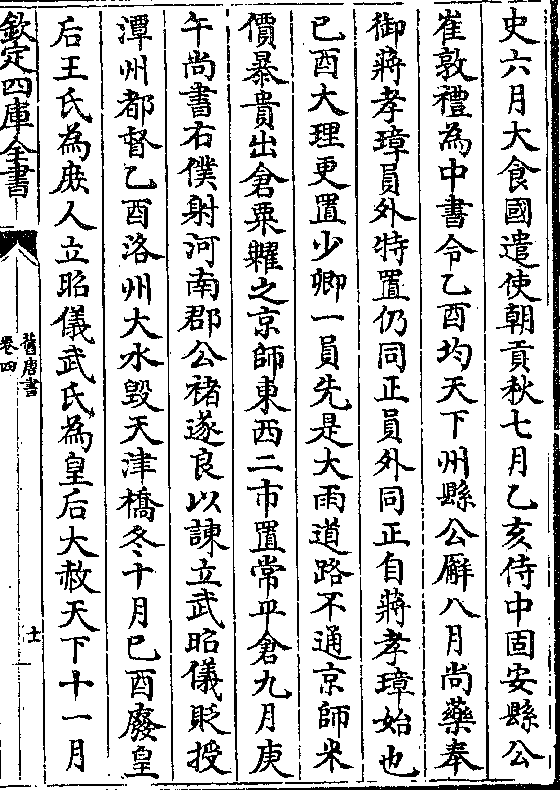 史六月大食國遣使朝貢秋七月乙亥侍中固安縣公
崔敦禮為中書令乙酉均天下州縣公廨八月尚藥奉
御蔣孝璋員外特置仍同正員外同正自蔣孝璋始也
已酉大理更置少卿一員先是大雨道路不通京師米
價暴貴出倉粟糶之京師東西二市置常平倉九月庚
午尚書右僕射河南郡公褚遂良以諫立武昭儀貶授
潭州都督乙酉洛州大水毀天津橋冬十月已酉廢皇
后王氏為庶人立昭儀武氏為皇后大赦天下十一月
欽定四庫全書
舊唐書
卷四
十